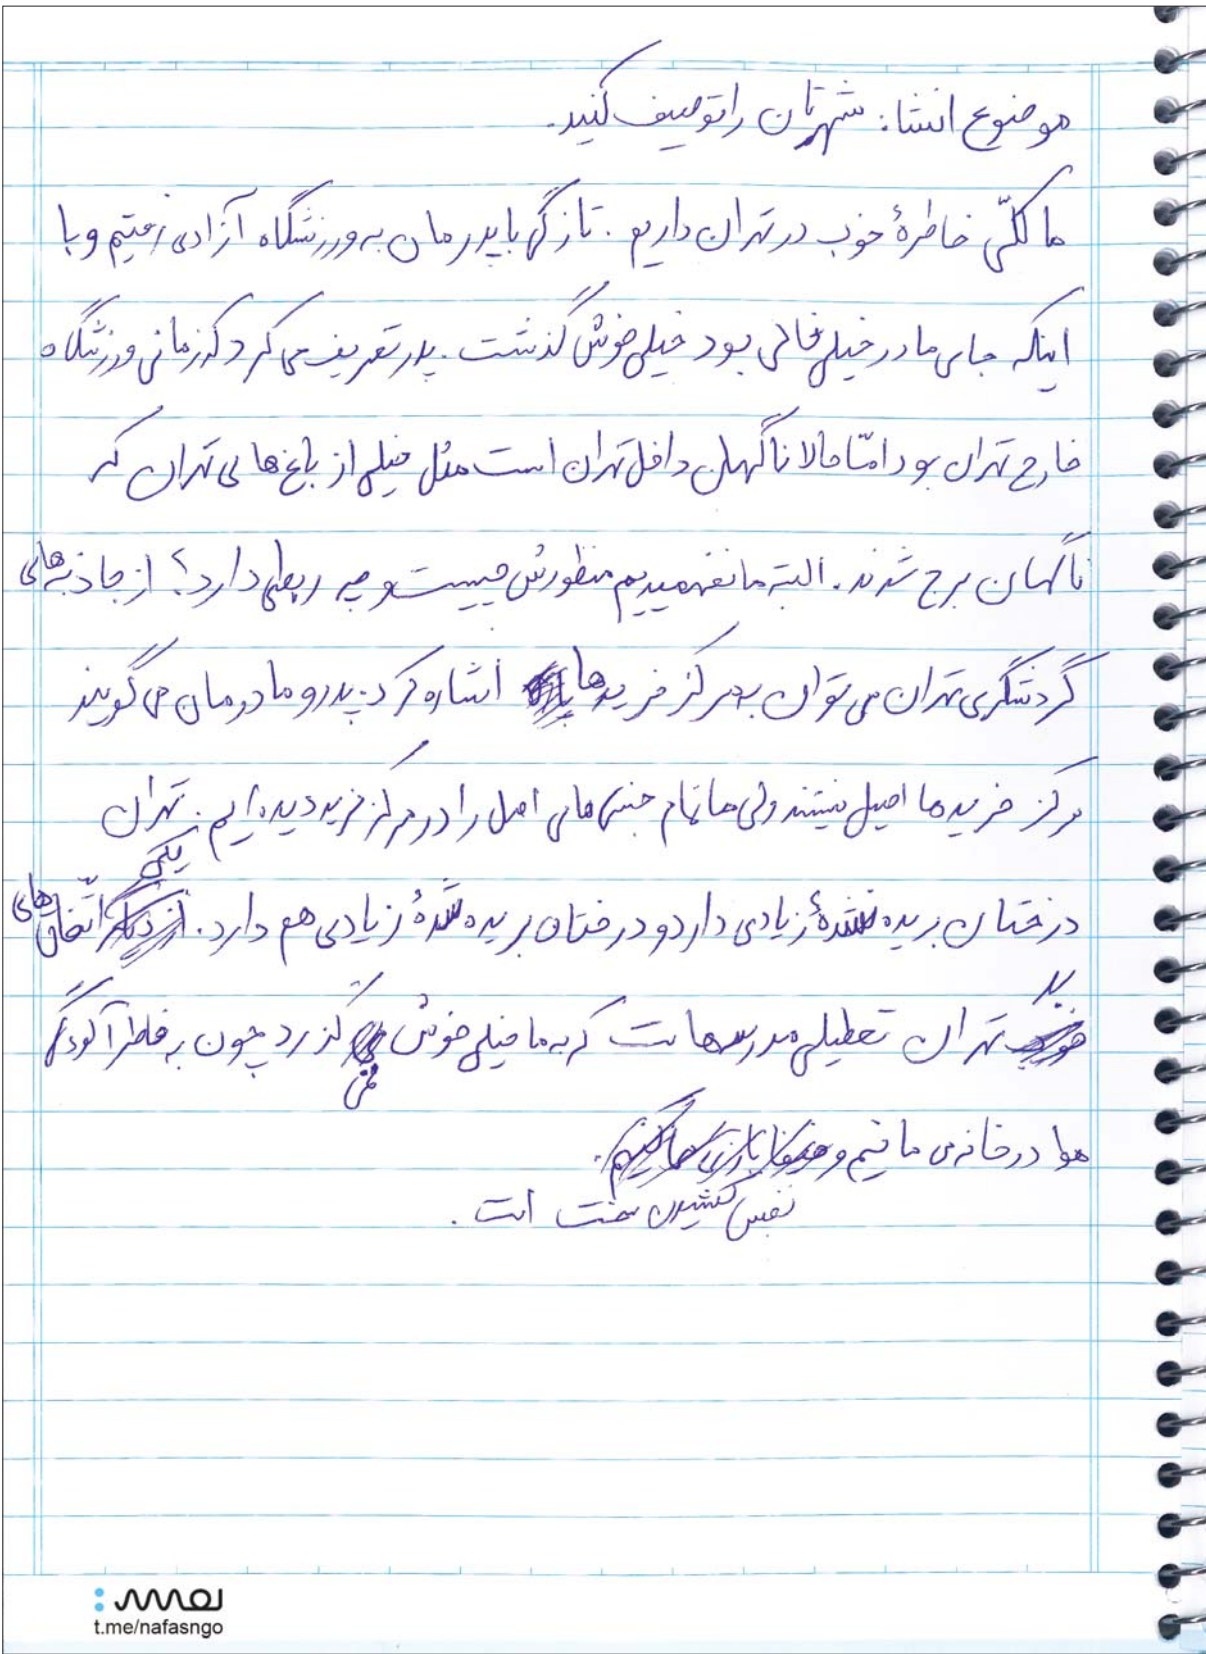 موضوع انشا: شهرتان را توصیف کنید.
ما کلّی خاطرهٔ خوب در تهران داریم. تازگی با پدرمان به ورزشگاه آزادی رفتیم و با
اینکه جای مادر خیلی خالی بود خیلی خوش گذشت. پدر تعریف می کرد که زمانی ورزشگاه
خارج تهران بود امّا حالا ناگهان داخل تهران است مثل خیلی از باغ هایی تهران که
ناگهان برج شدند. البته ما نفهمیدیم منظورش چیست و چه ربطی دارد؟ از جاذبه های
گردشگری تهران می توان به مرکز خریدها اشاره کرد. پدر و مادرمان می گویند
مرکز خریدها اصیل نیستند ولی ما تمام جنس های اصل را در مرکز خرید دیده ایم. تهران
درختان بریده نشدهٔ زیادی دارد و درختان بریده شدهٔ زیادی هم دارد. یکی از اتّفاق های
بد تهران تعطیلی مدرسه هاست که به ما خیلی خوش نمی گذرد چون به خاطر آلودگی
هوا در خانه می مانیم و
نفس کشیدن سخت است.
نفس
t.me/nafasngo